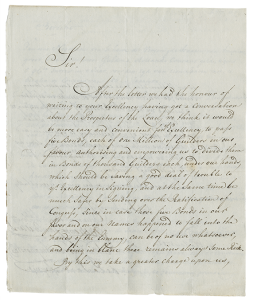 Sir!
After the letter we had the honour of
writing to your Excellency having got a Conversation
about the Propositions of the Loan, we think it would
be more easy and convenient for Excellency to pass
five Bonds, each of one Million of Guilders in our
favour, authorising and empowering us to divide them
in Bonds of thousand Guilders each, under our hands,
which should be saving a good deal of trouble to
yr Excellency in Signing, and at the same time be
much Safer by Sending over the Ratification of
Congress, Since in case these five Bonds in our
favour and our Names happened to fall into the
hands of the Enemy, can be of no use whatsoever,
and being in blank there remains always Some Risk.
By this we take a greater charge upon us,